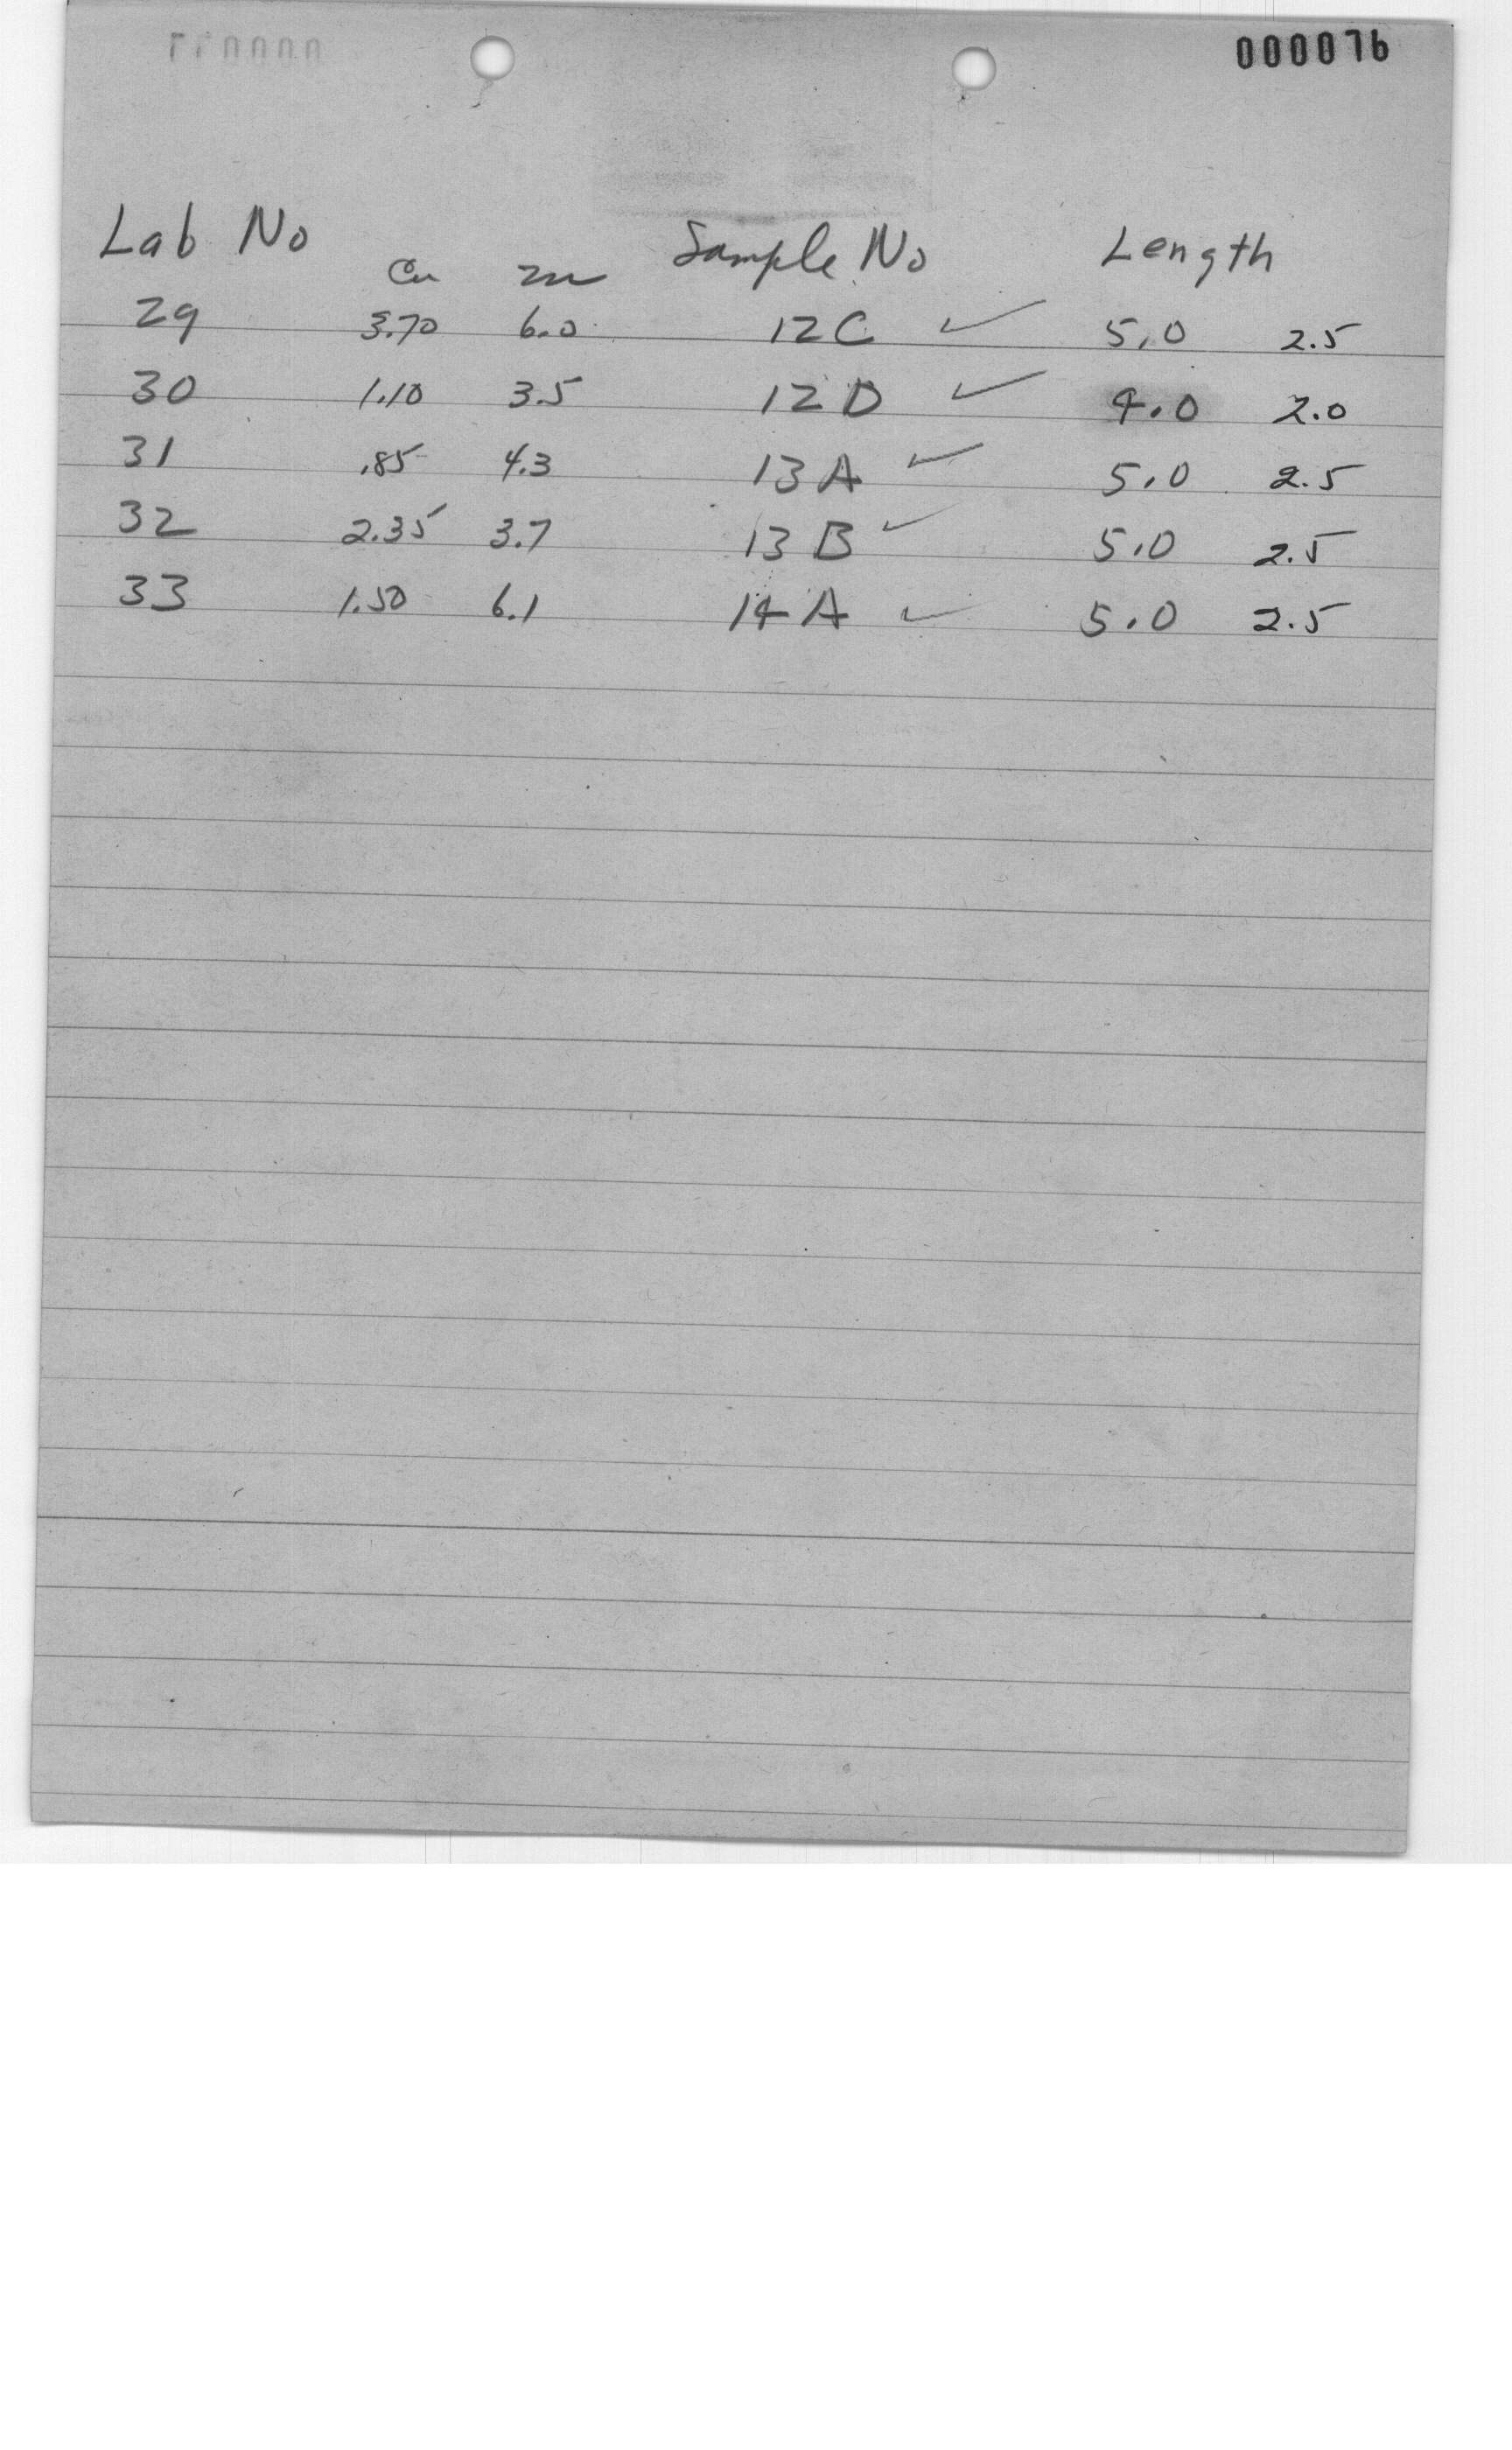 000076
Lab No Cu Zn Sample No Length
29 3.70 6.0 12C ✓ 5.0 2.5
30 1.10 3.5 12D ✓ 4.0 2.0
31 .85 4.3 13A ✓ 5.0 2.5
32 2.35 3.7 13B ✓ 5.0 2.5
33 1.50 6.1 14A ✓ 5.0 2.5